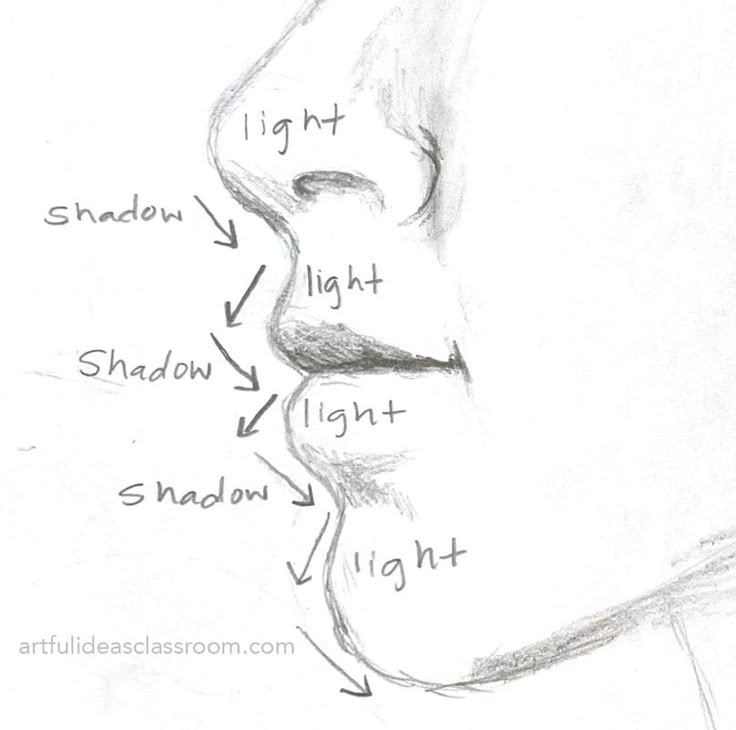 light
shadow
light
Shadow
light
shadow
light
artfulideasclassroom.com